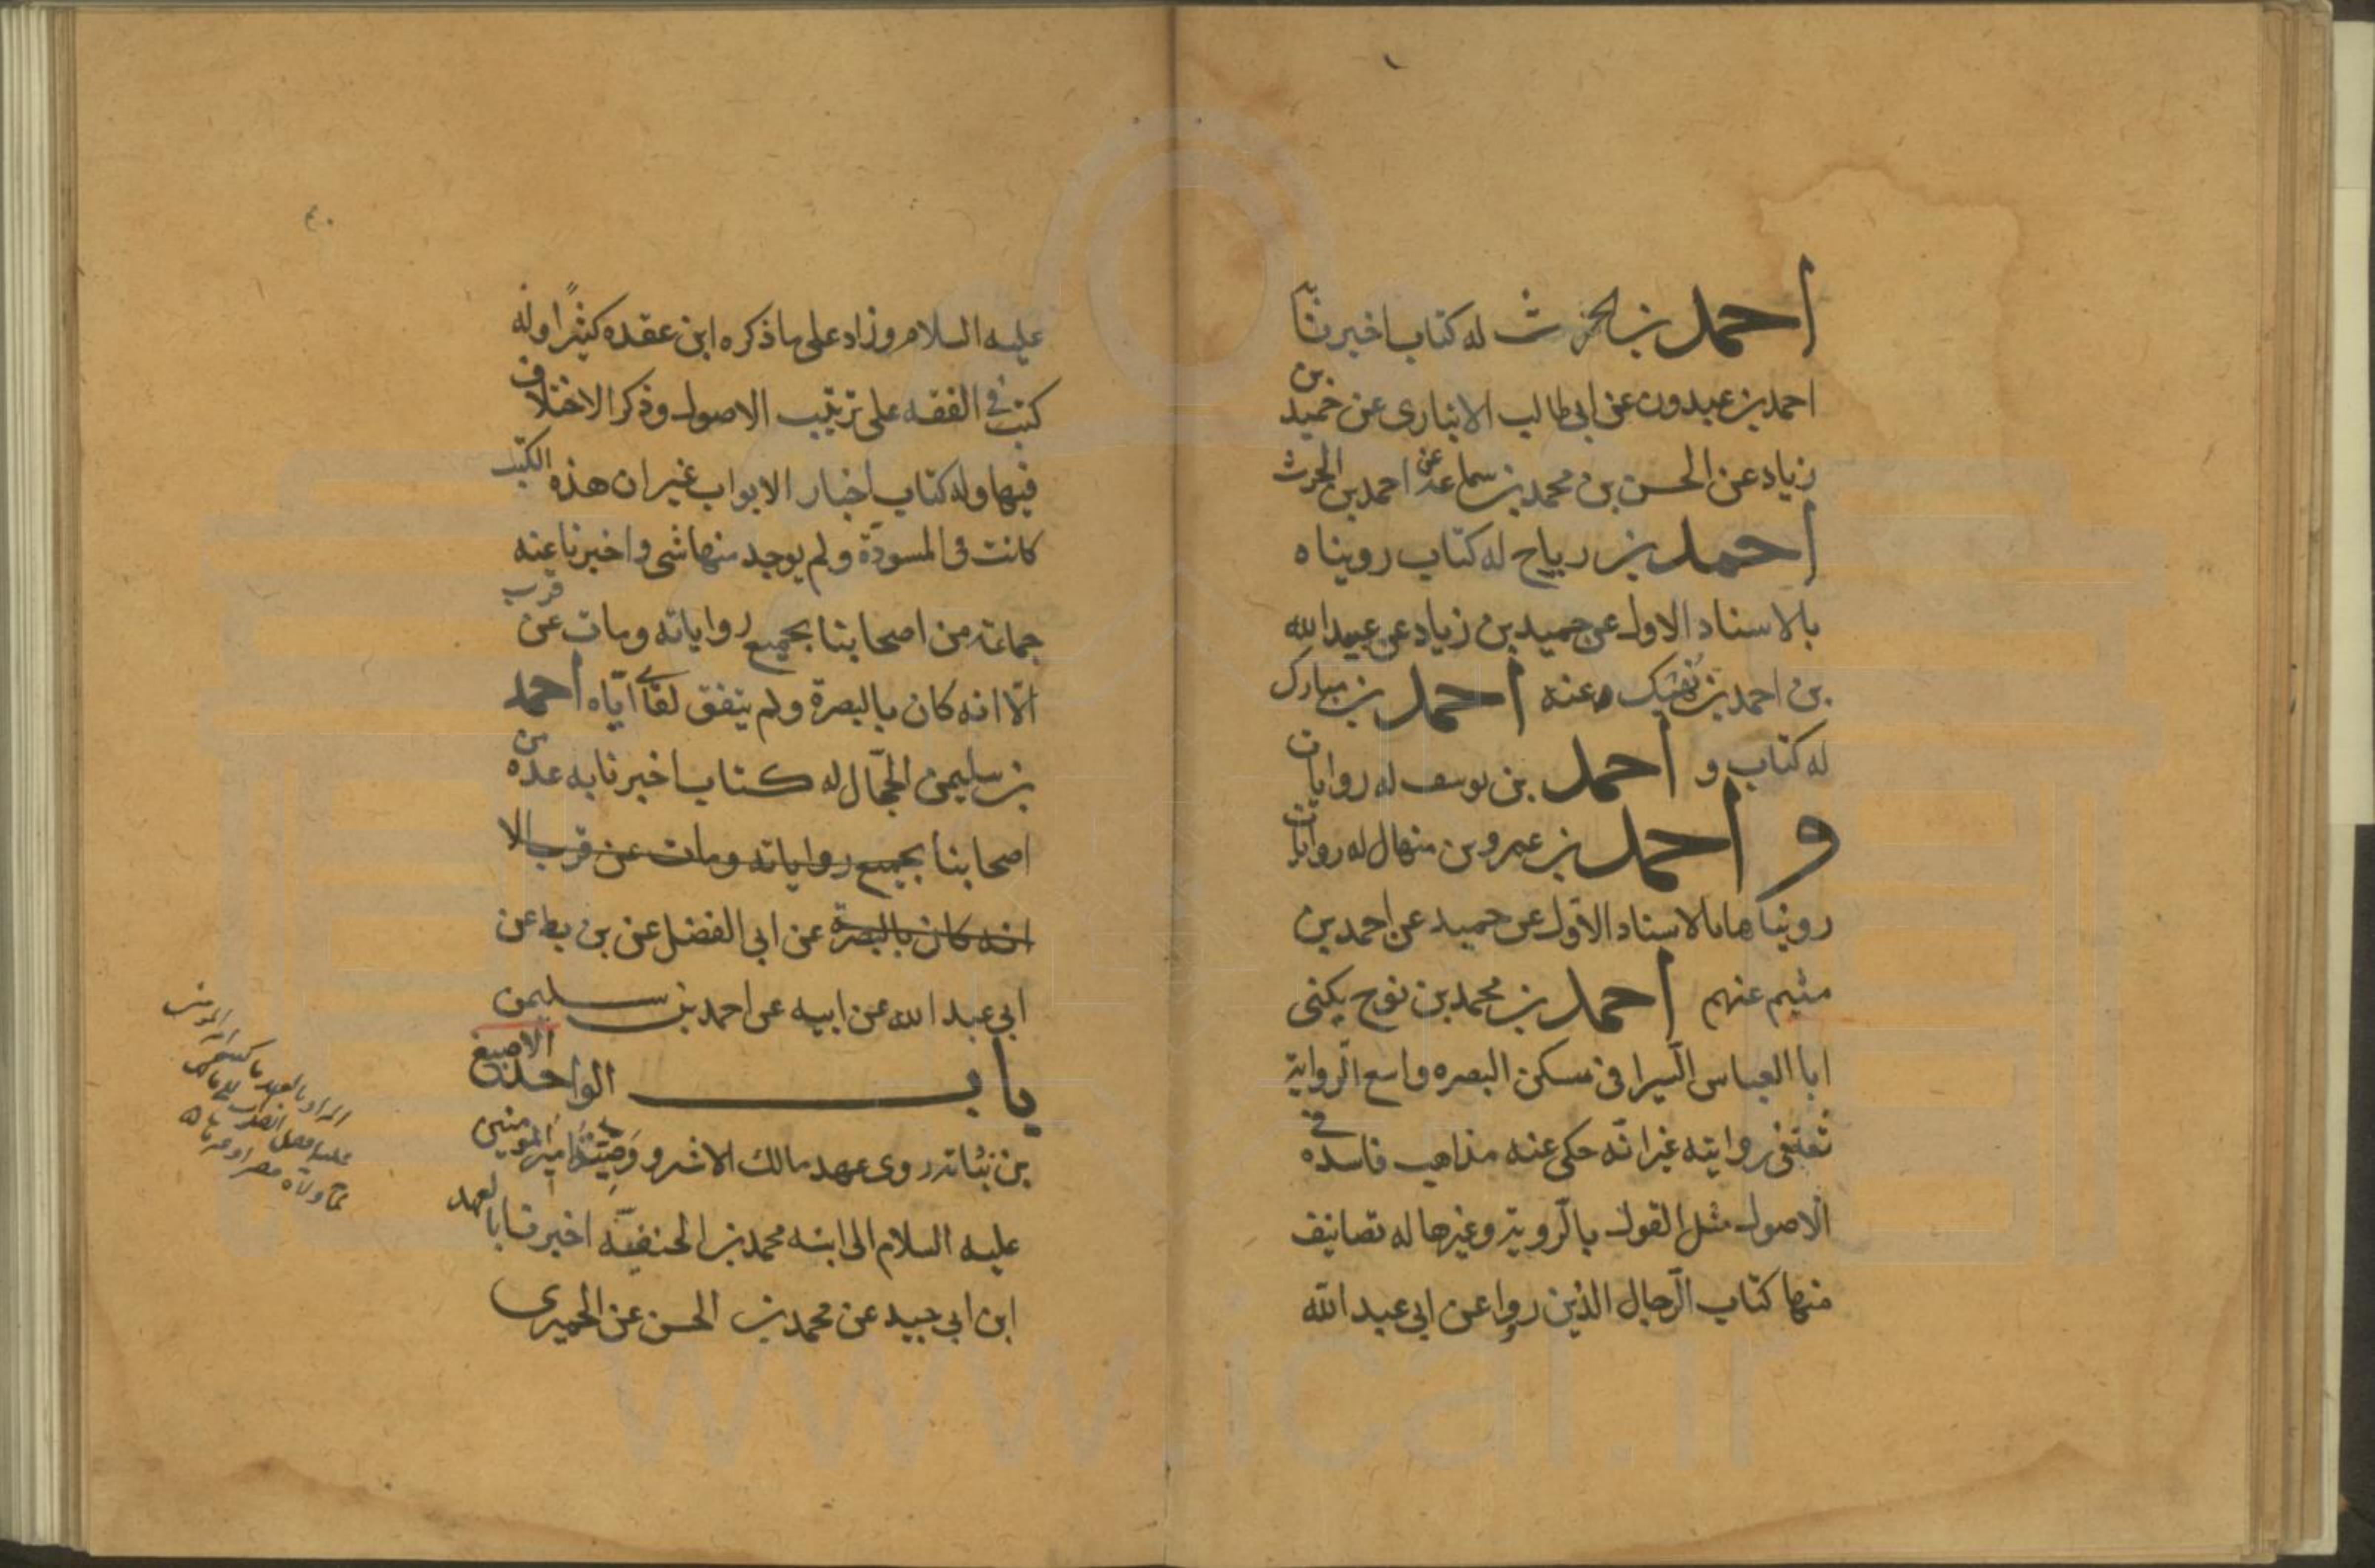 احمد بن الحرث له كتاب اخبرنا
احمد بن عبدون عن ابی طالب الانباری عن حميد بن
زياد عن الحسن بن محمد بن سماعة عن احمد بن الحرث
احمد بن رياح له كتاب رويناه
بالاسناد الاول عن حميد بن زياد عن عبيد الله
بن احمد بن نهيك عنه احمد بن مبارك
له كتاب و احمد بن يوسف له روايات
و احمد بن عمرو بن منهال له روايات
رويناها بالاسناد الاوّل عن حميد عن احمد بن
ميثم عنهم احمد بن محمد بن نوح يكنى
ابا العباس السّيرافى سكن البصره واسع الرّواية
ثقة فى روايته غير انّه حكى عنه مذاهب فاسده فى
الاصول مثل القول بالرّوية وغيرها له تصانيف
منها كتاب الرّجال الذين رووا عن ابى عبد الله
عليه السلام وزاد على ما ذكره ابن عقده كثيرًا وله
كتب فى الفقه على ترتيب الاصول وذكر الاختلاف
فيها وله كتاب اخبار الابواب غير ان هذه الكتب
كانت فى المسودّة ولم يوجد منها شى واخبرنا عنه
جماعة من اصحابنا بجميع رواياته ومات عن قرب
الّا انه كان بالبصرة ولم يتفق لقائى ايّاه احمد
بن سليمن الحجّال له كتاب اخبرنا به عدة من
اصحابنا بجميع رواياته ومات عن قرب الا
انه كان بالبصرة عن ابى الفضل عن بن بطه عن
ابى عبد الله عن ابيه عن احمد بن سليمن
باب الواحد الاصبغ
بن نباتة روى عهد مالك الاشتر ووصيّة امير المومنين
عليه السلام الى ابنه محمد بن الحنفيّه اخبرنا بالعهد
ابن ابى جيد عن محمد بن الحسن عن الحميرى